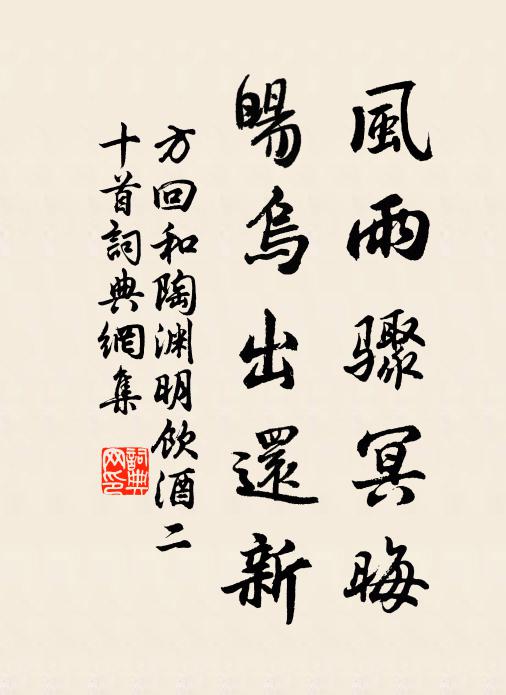 風雨驟冥晦
暘烏出還新
方回和陶淵明飲酒二
十首詞典網集
詞典
网印